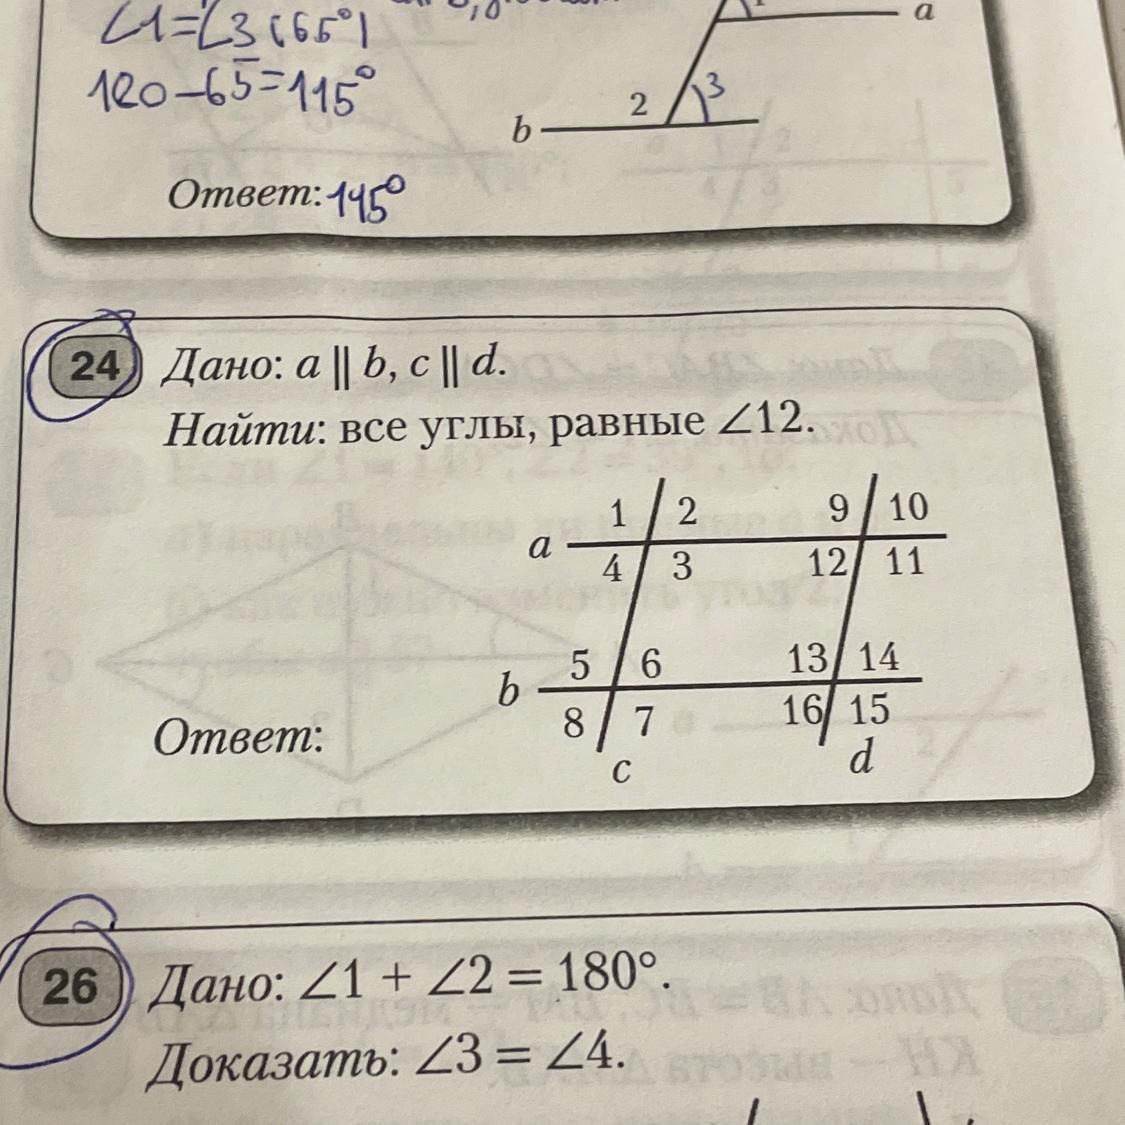 ∠1=∠3 (65°)
180-65=115°
a
1
2
3
b
Ответ: 115°
24 Дано: a || b, c || d.
Найти: все углы, равные ∠12.
1 2 9 10
a
4 3 12 11
5 6 13 14
b
8 7 16 15
Ответ:
c d
26 Дано: ∠1 + ∠2 = 180°.
Доказать: ∠3 = ∠4.